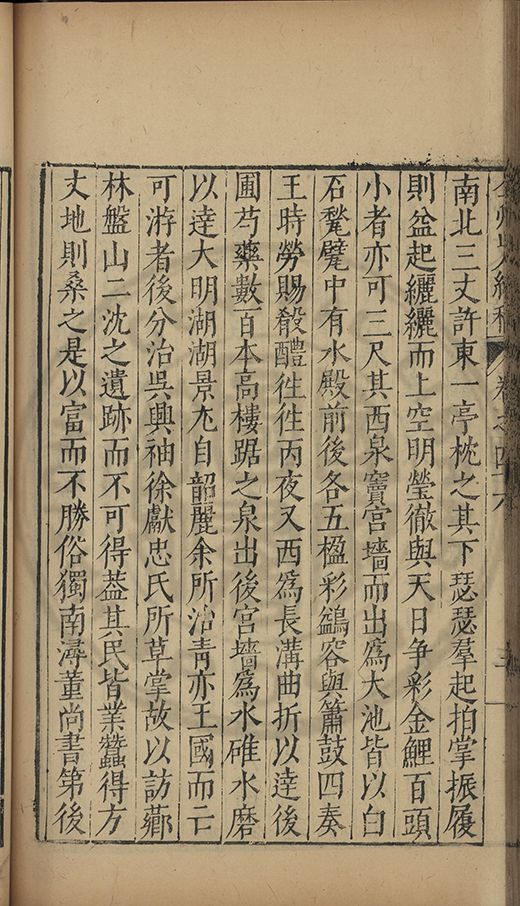 州山人續稿 卷之四十六
南北三丈許東一亭枕之其下瑟瑟羣起拍掌振履
則盆起纚纚而上空明瑩徹與天日争彩金鯉百頭
小者亦可三尺其西泉竇宫墻而出為大池皆以白
石甃甓中有水殿前後各五楹彩鷁容與簫鼓四奏
王時勞賜殽醴徃徃丙夜又西爲長溝曲折以達後
圃芍藥數百本高樓踞之泉出後宫墻爲水碓水磨
以達大明湖湖景尤自韶麗余所治青亦王國而亡
可游者後分治吳興袖徐獻忠氏所草掌故以訪薌
林盤山二沈之遺跡而不可得葢其民皆業蠶得方
丈地則桑之是以富而不勝俗獨南潯董尚書第後